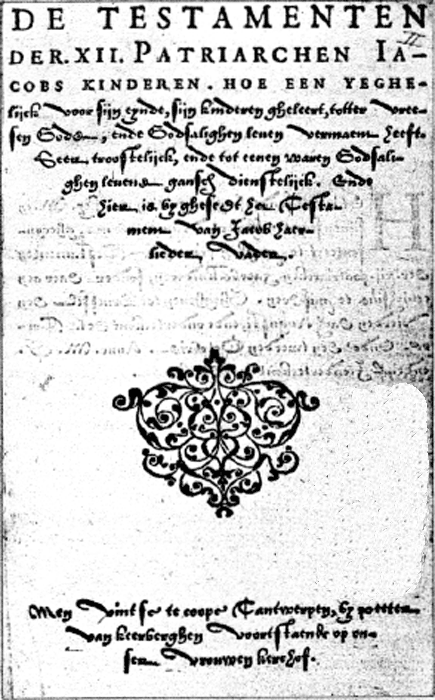 DE TESTAMENTEN
DER. XII. PATRIARCHEN IA-
COBS KINDEREN. HOE EEN YEGHE-
lijck voor sijn eynde, sijn kinderen gheleert, totter vree-
sen Gods, ende Godsalighen leven vermaent heeft.
Seer troostelijck, ende tot eenen waren Godsali-
ghen levene gansch dienstelijck. Ende
hier is by gheset het Testa-
ment van Jacob haer-
lieder, vader.
Men vintse te coope Tantwerpen, by peeter
van keerberghen voortstaende op on-
ser vrouwen kerchof.